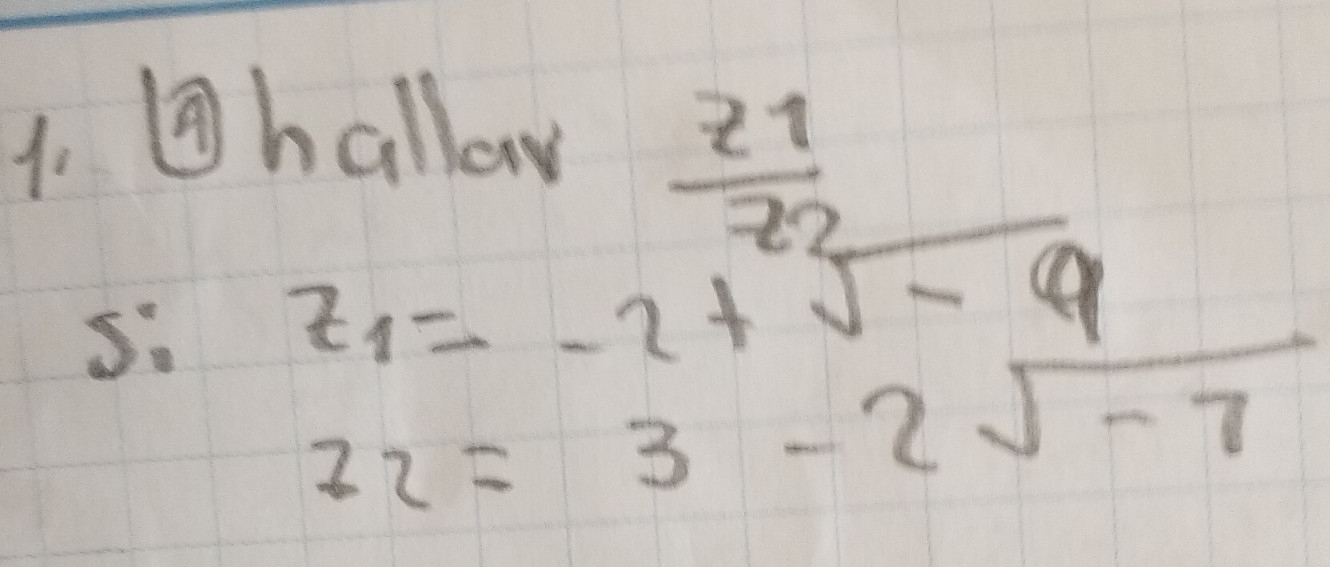 1. ⓐ hallar z1/z2
Si z1 = -2 + √-9
z2 = 3 - 2√-7